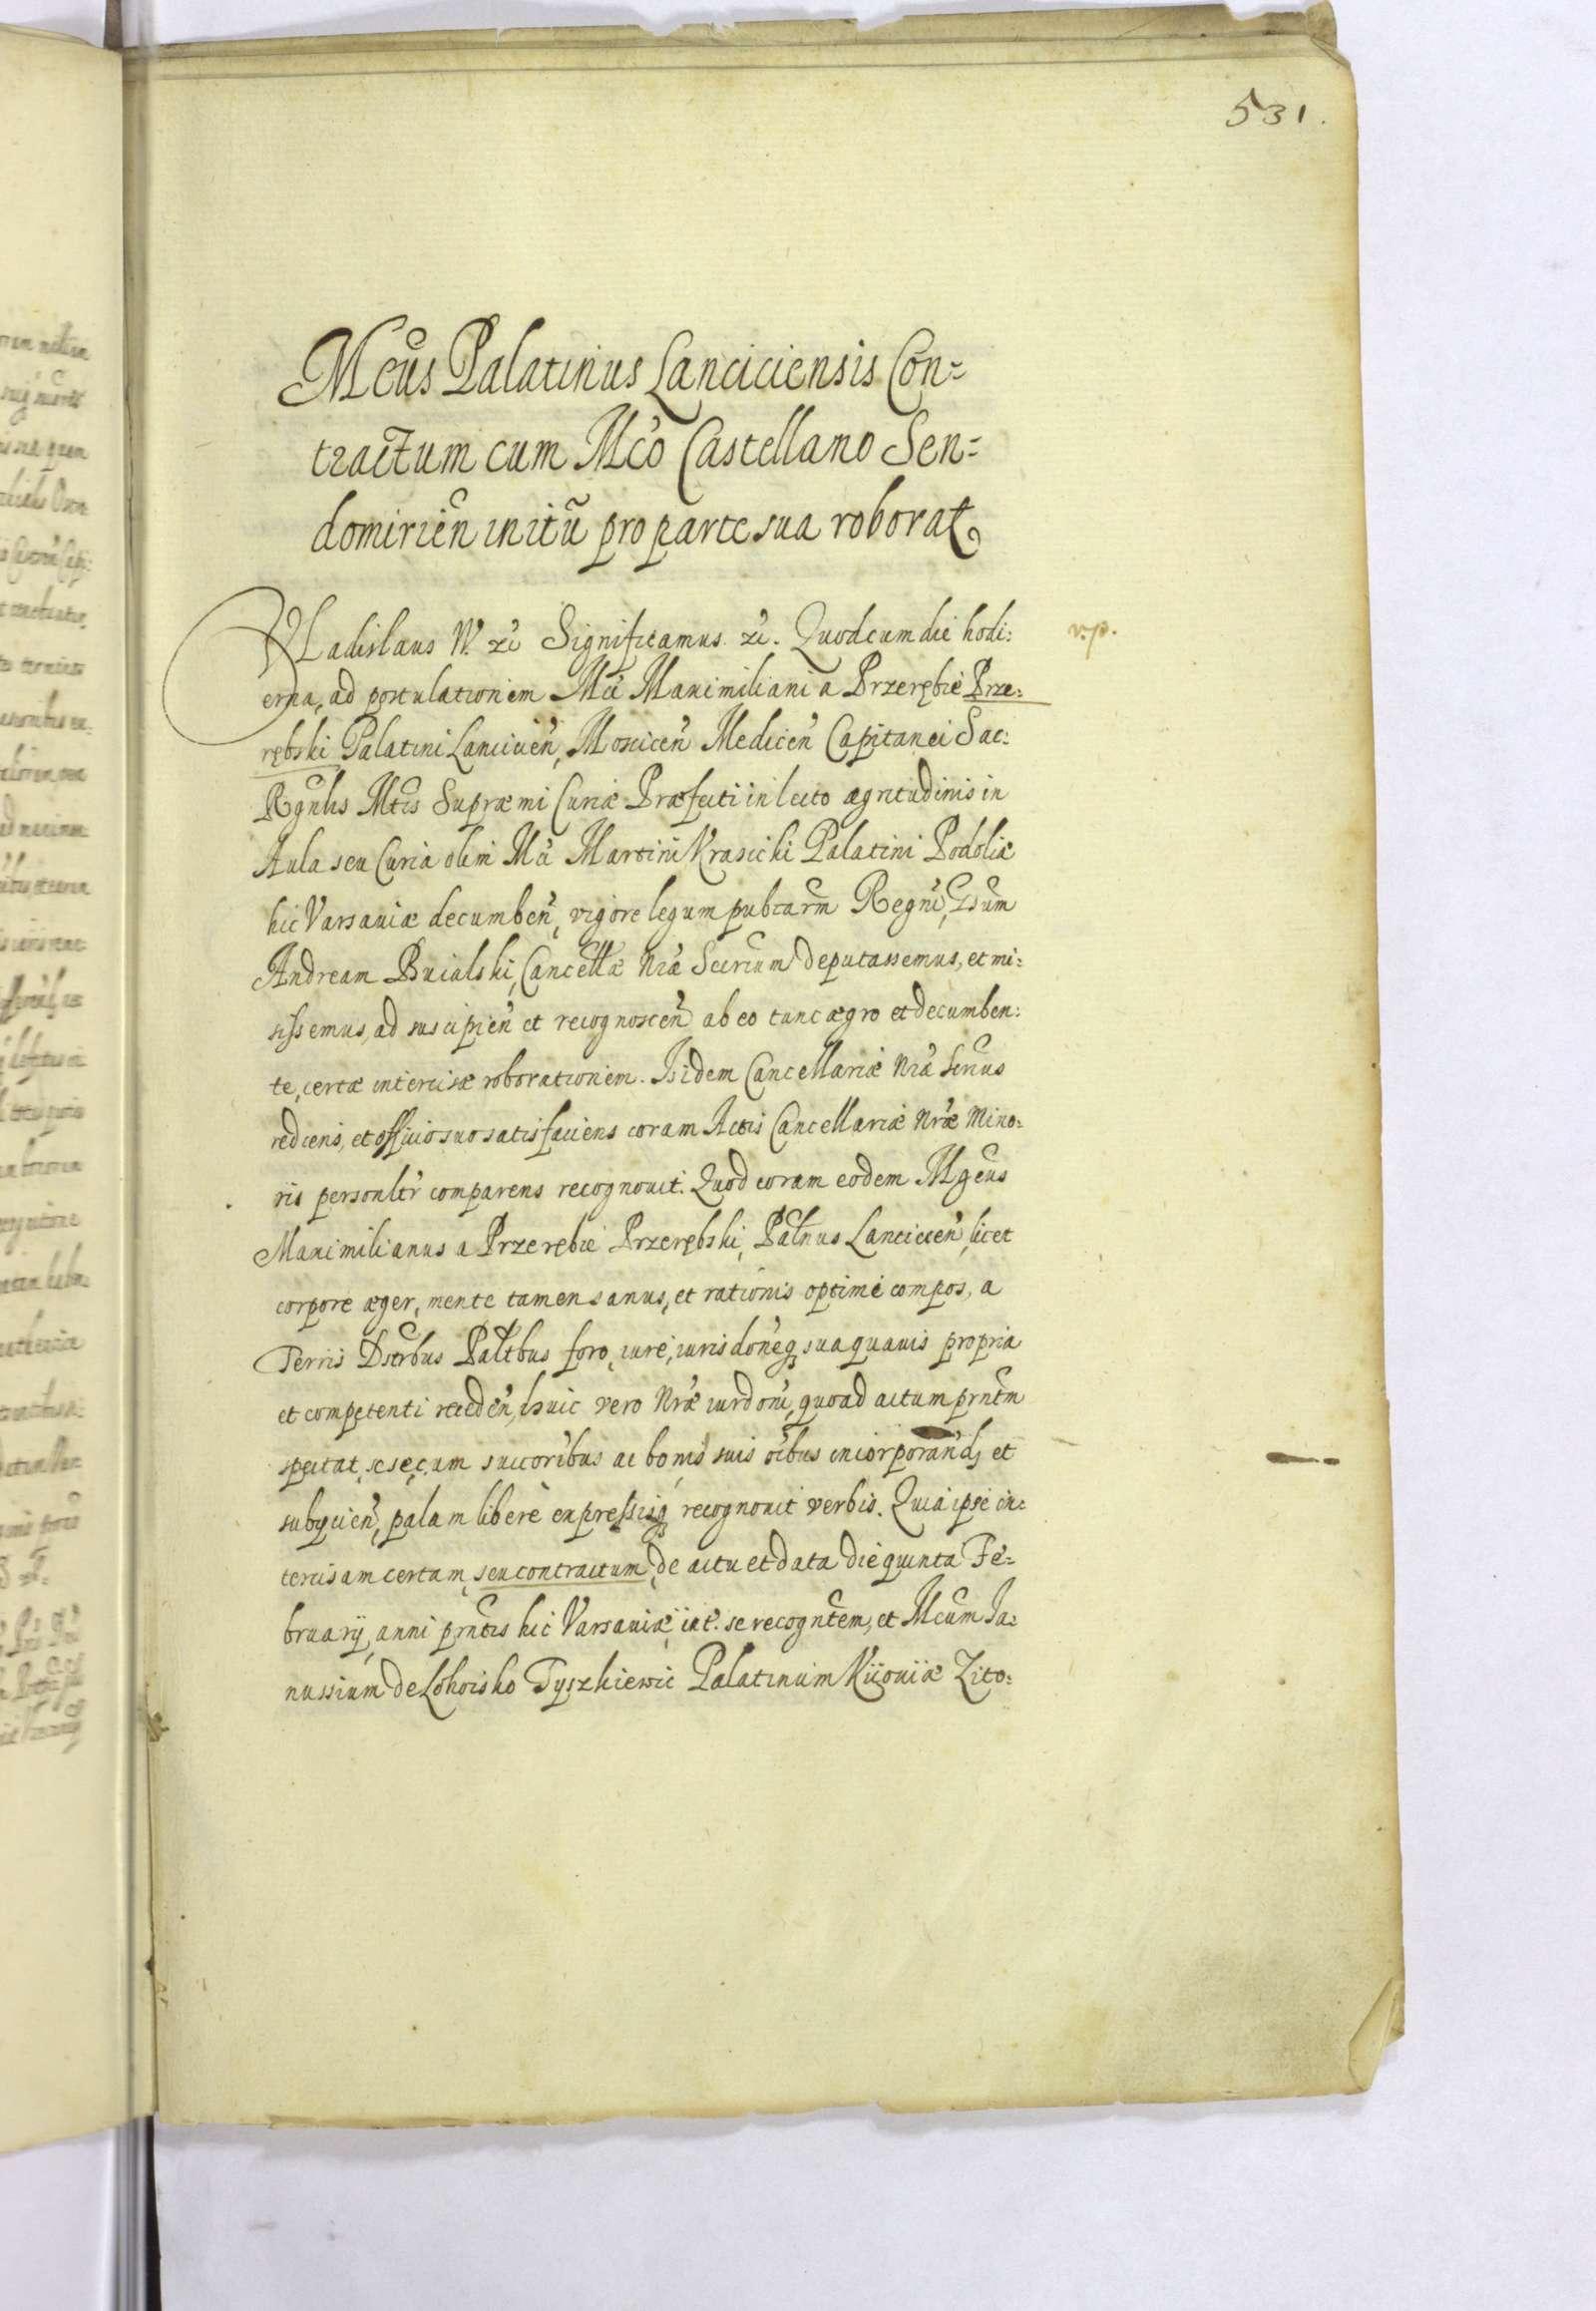 531.
Mcus Palatinus Lanciciensis Con=
tractum cum Mco Castellano Sen=
domirien̄ initū pro parte sua roborat
VLadislaus IV. &c Significamus &c. Quod cum die hodi:
v.p.
erna, ad postulationem Mci Maximiliani a Przerębie Prze:
rębski Palatini Lanciciēn, Moscicēn Medicēn Capitanei Sac:
Rgnlis Mtis Supræmi Curiæ Præfecti in lecto ægritudinis in
Aula seu Curia olim Mci Martini Krasicki Palatini Podoliæ
hic Varsaviæ decumbēn, vigore legum pubcarm Regni, Gsum
Andream Buialski, Cancellæ Nræ Scrium deputassemus, et mi:
sissemus, ad suscipiēn et recognoscēn ab eo tunc ægro et decumben:
te, certæ intercisæ roborationem. Is idem Cancellariæ Nræ Scrius
rediens, et officio suo satisfaciens coram Actis Cancellariæ Nræ Mino:
ris personltr comparens recognovit. Quod coram eodem Mgcus
Maximilianus a Przerębie Przerębski, Paltnus Lanciciēn, licet
corpore æger, mente tamen sanus, et rationis optime compos, a
Terris Dstrbus Paltbus foro, iure, iurisdoneq₃ sua quavis propria
et competenti recedēn, huic vero Nræ iurdoni, quoad actum prntm
spectat, se se cum succoribus ac bonis suis oibus incorporand, et
subyciēn, palam libere expressisq₃ recognovit verbis. Quia ipse in:
tercisam certam, seu contractum, de actu et data die quinta Fe:
bruarÿ, anni prntis hic Varsaviæ, int. se recogntem, et Mcum Ja:
nussium de Lohoisko Tyszkiewic Palatinum Kiioviæ Zito: